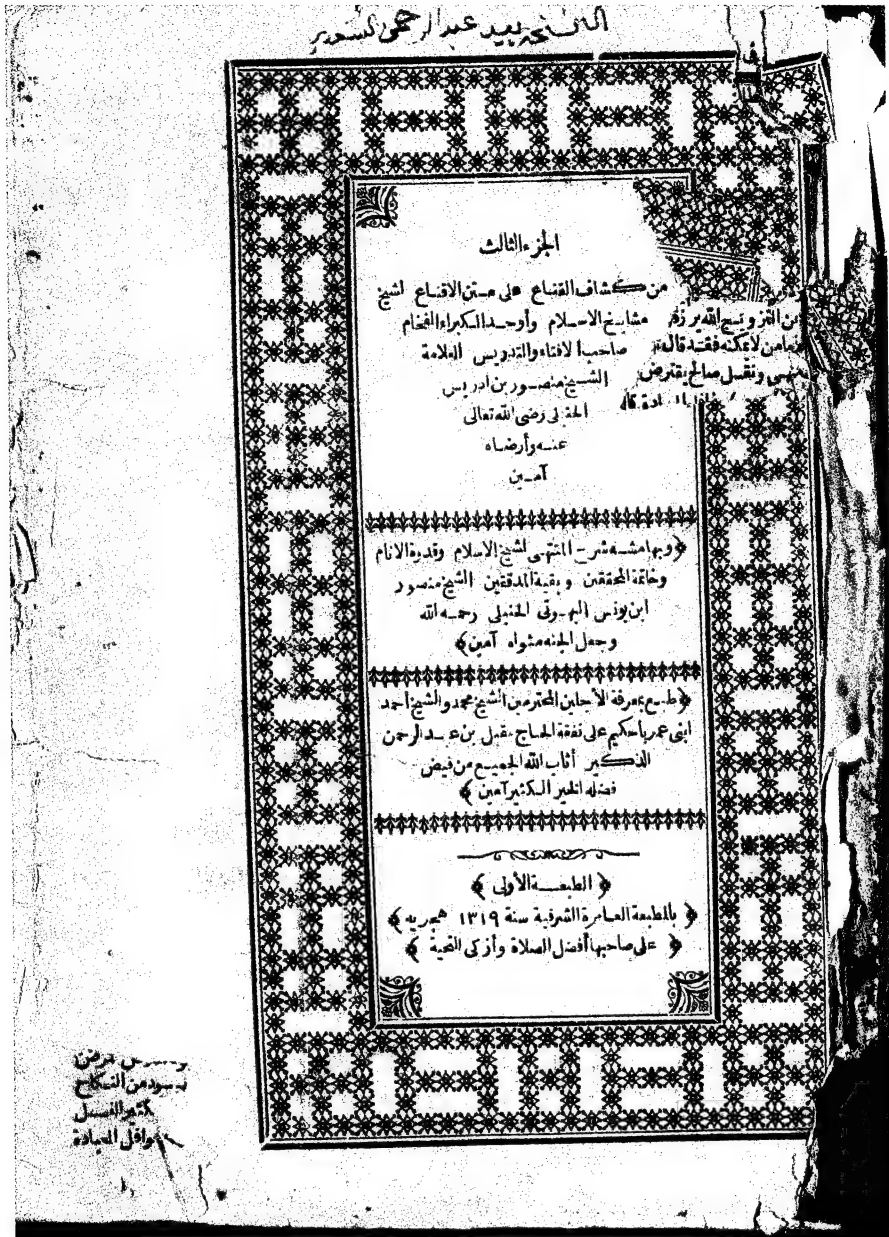 الجزء الثالث
من كشاف القناع على متن الاقناع لشيخ
مشايخ الاسلام وأوحد الكبراء الفخام
صاحب الافتاء والتدريس العلامة
الشيخ منصور بن ادريس
الحنبلى رضى الله تعالى
عنه وأرضاه
آمين
﴿وبهامشه شرح المنتهى لشيخ الاسلام وقدوة الانام
وخاتمة المحققين وبقية المدققين الشيخ منصور
ابن يونس البهوتى الحنبلى رحمه الله
وجعل الجنة مثواه آمين﴾
﴿طبع بمعرفة الأجلين المحترمين الشيخ محمد والشيخ أحمد
ابنى عمر باحكيم على نفقة الحاج مقبل بن عبد الرحمن
الذكير أثاب الله الجميع من فيض
فضله الخير الكثير آمين﴾
﴿الطبعة الأولى﴾
﴿بالمطبعة العامرة الشرفية سنة ١٣١٩ هجريه﴾
﴿على صاحبها أفضل الصلاة وأزكى التحية﴾
من لا يمكنه فقد قال
ونقل صالح يقترض
من النكاح
نوافل العبادة